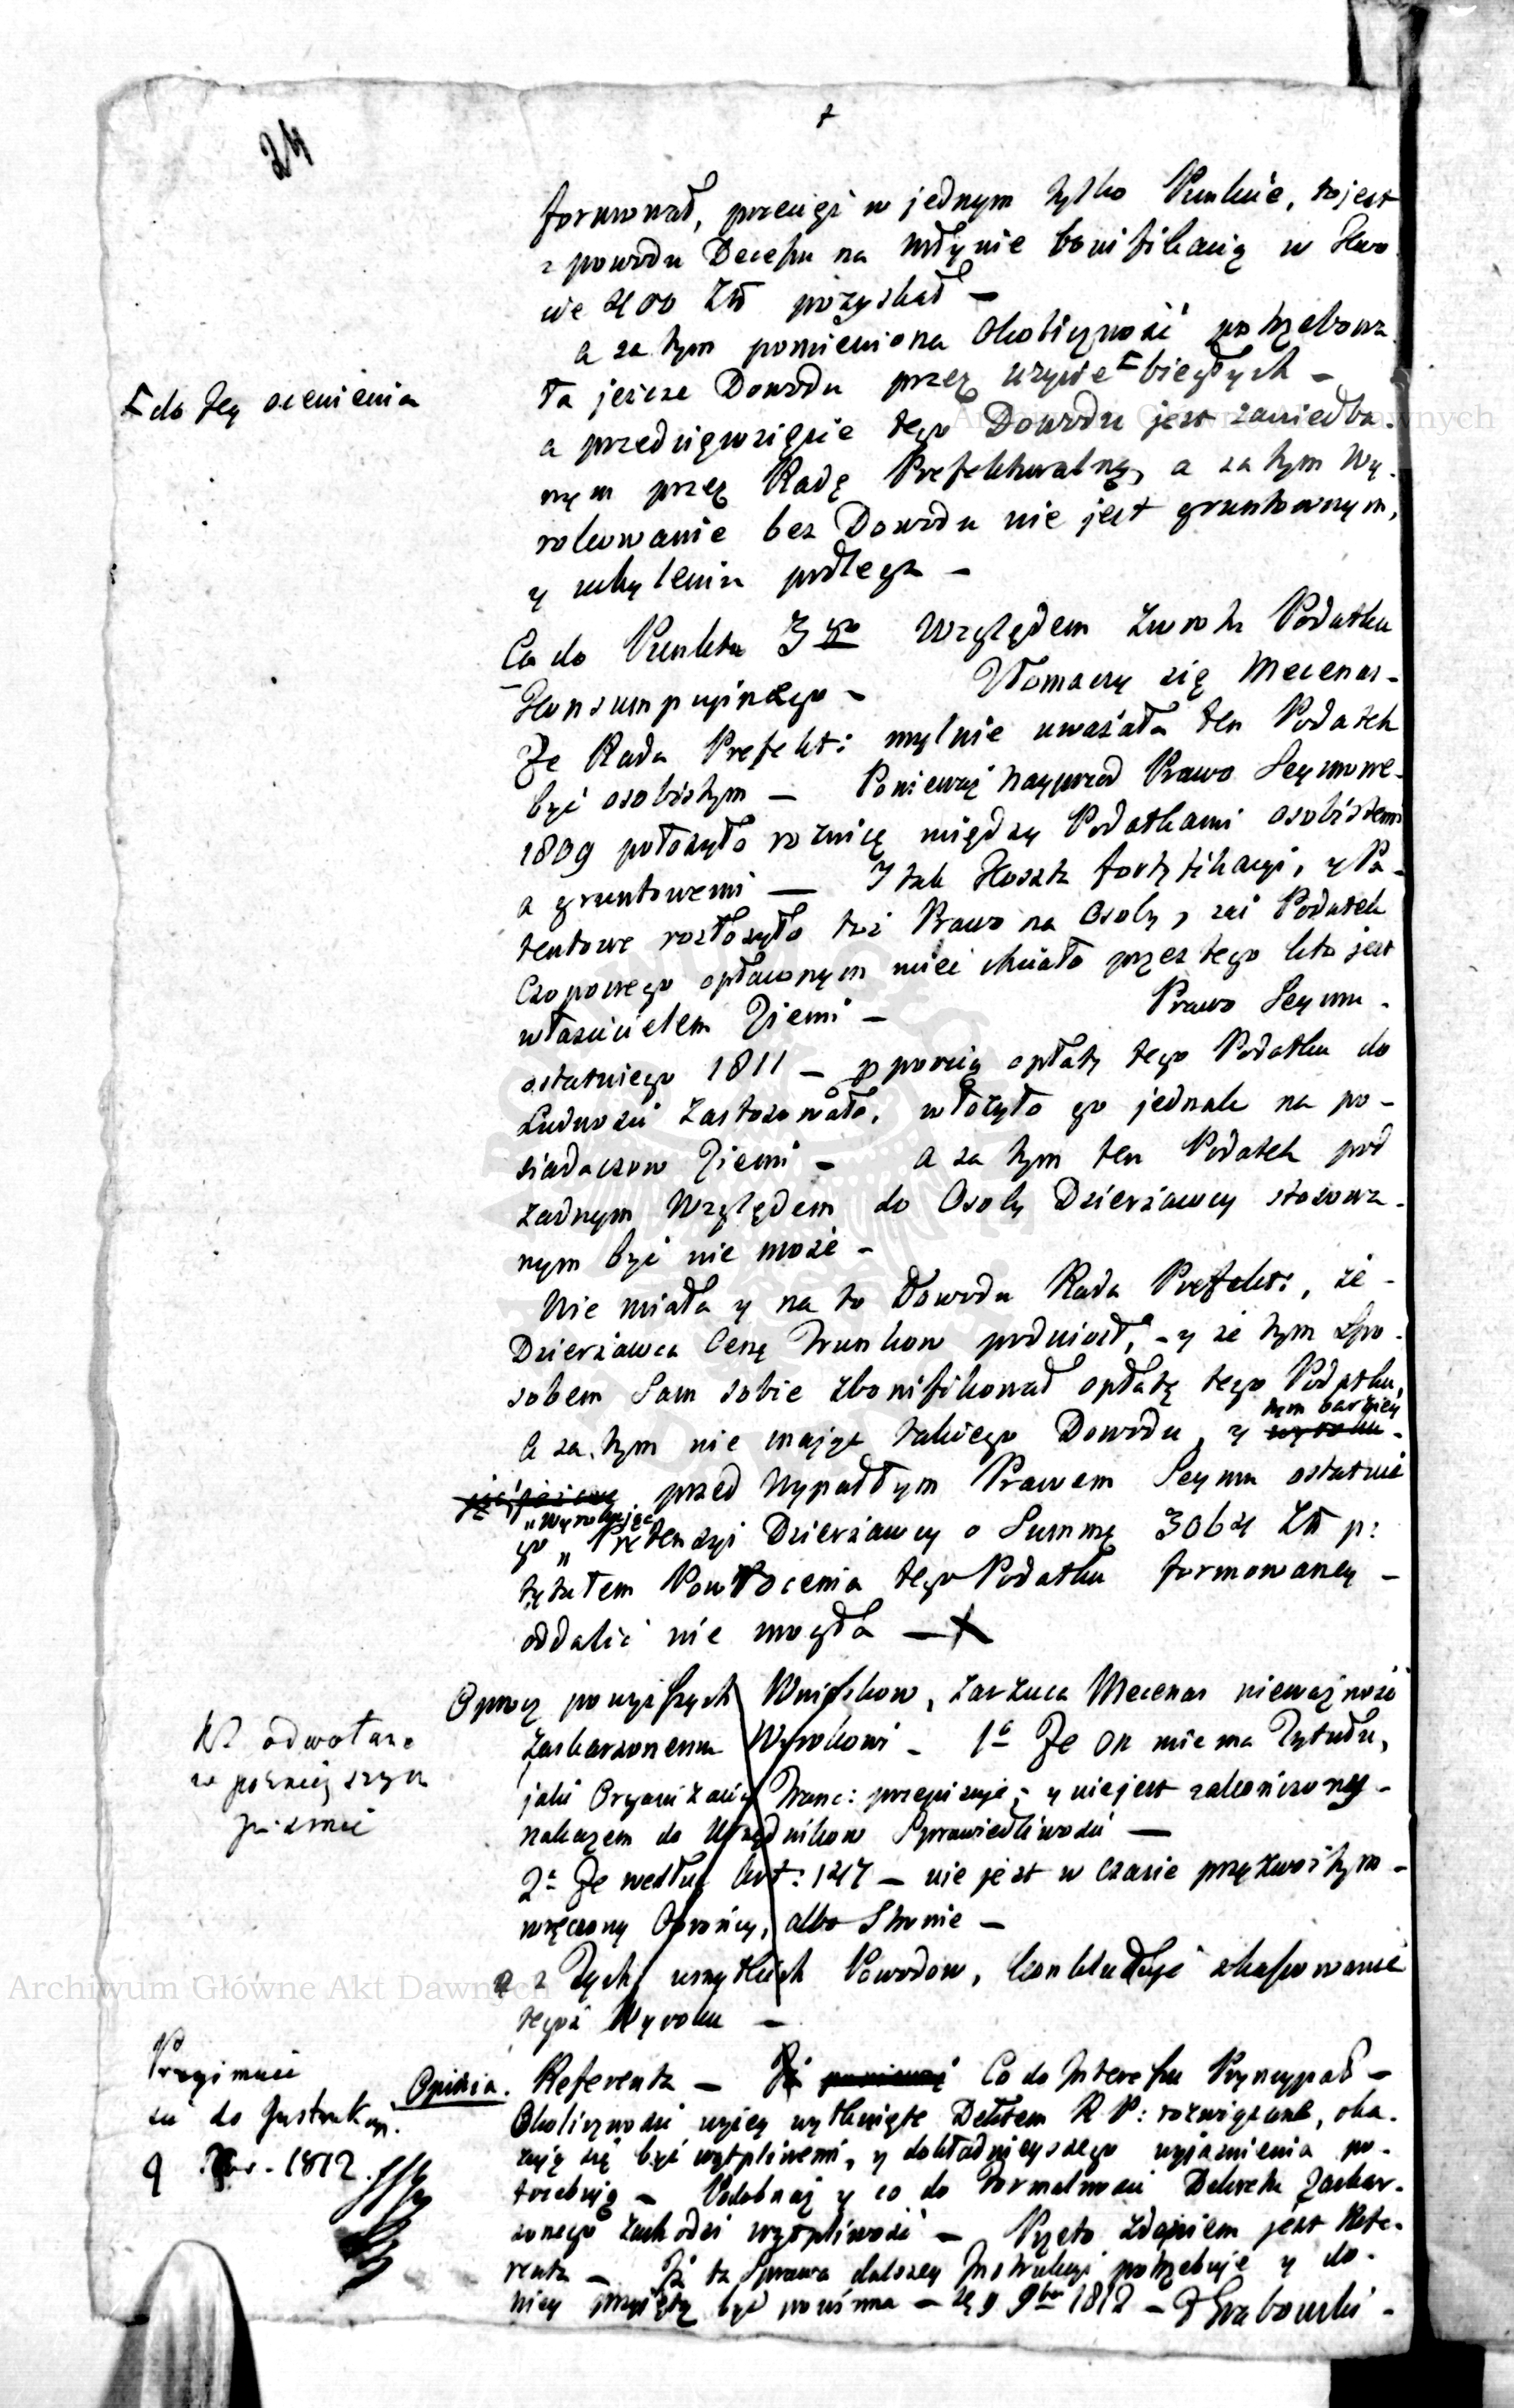 24
formował, przecież w jednym tylko Punkcie, to jest
z powodu Decessu na Młynie bonifikacyą w Kwo
cie 400 Zł pozyskał —
a za tym pomieniona Okoliczność potrzebowa
ła jeszcze Dowodu przez użycie biegłych —
do tey ocenienia
a przedsięwzięcie tego Dowodu jest zaniedba-
nym przez Radę Prefekturalną, a za tym Wy-
rokowanie bez Dowodu nie jest gruntownym,
y uchyleniu podlega —
Co do Punktu 3go Względem Zwrotu Podatku
Konsumpcyjnego — Tłomaczy się Mecenas —
Że Rada Prefekt: mylnie uważała ten Podatek
być osobistym — Ponieważ Nayprzod Prawo Seymowe
1809 położyło roznicę między Podatkami osobistemi
a gruntowemi — I tak Koszta fortyfikacyi, y Pa-
tentowe rozłożyło też Prawo na Osoby, zaś Podatek
Czopowego opłaconym mieć chciało przez tego kto jest
właścicielem Ziemi — Prawo Seymu
ostatniego 1811 — proporcyą opłaty tego Podatku do
Ludności Zastosowało, włożyło go jednak na po-
siadaczow Ziemi — a za tym ten Podatek pod
żadnym Względem do Osoby Dzierżawcy stosowa-
nym być nie może —
Nie miała y na to Dowodu Rada Prefekt:, że —
Dzierżawca Cenę Trunkow podniosł, — y że tym Spo-
sobem Sam sobie zbonifikował opłatę tego Podatku,
a za tym nie mając takiego Dowodu, y wyroku-
tym barziey
przed Wypadłym Prawem Seymu ostatnie
"wyrokując
go " Pretensyi Dzierżawcy o Summę 3064 Zł p:
tytułem Powrocenia tego Podatku formowaney —
oddalić nie mogła —
Oprocz powyższych Wniosków, zarzuca Mecenas nieważność
Zaskarżonemu Wyrokowi — 1o Że on nie ma Tytułu,
jaki Organizacya Franc: przepisuje; y nie jest zakończony —
nakazem do Urzędnikow Sprawiedliwości —
2o Że według Art: 147 — nie jest w czasie przyzwoitym —
wręczony Obrońcy, albo Stronie —
a z Tych wszytkich Powodow, konkluduje skassowanie
tegoż Wyroku —
NB odwołane
w poznieyszym
pismie
Opinia. Referenta — Iż ponieważ Co do Interessu Pryncypał —
Okoliczności wyżey wytknięte Dekretem R P: rozwiązane, oka-
zuią się być wątpliwemi, y dokładnieyszego wyjaśnienia po-
trzebuią — Podobnież y co do Formalności Dekretu Zaskar-
żonego zachodzi wątpliwość — Przeto zdaniem jest Refe-
renta — Iż ta Sprawa dalszey Instrukcyi potrzebuje y do
niey przyięta być powinna — 9 9bra 1812 — Grabowski —
Przyimuie
się do Instrukcyi.
9 1812.
Archiwum Główne Akt Dawnych
Archiwum Główne Akt Dawnych